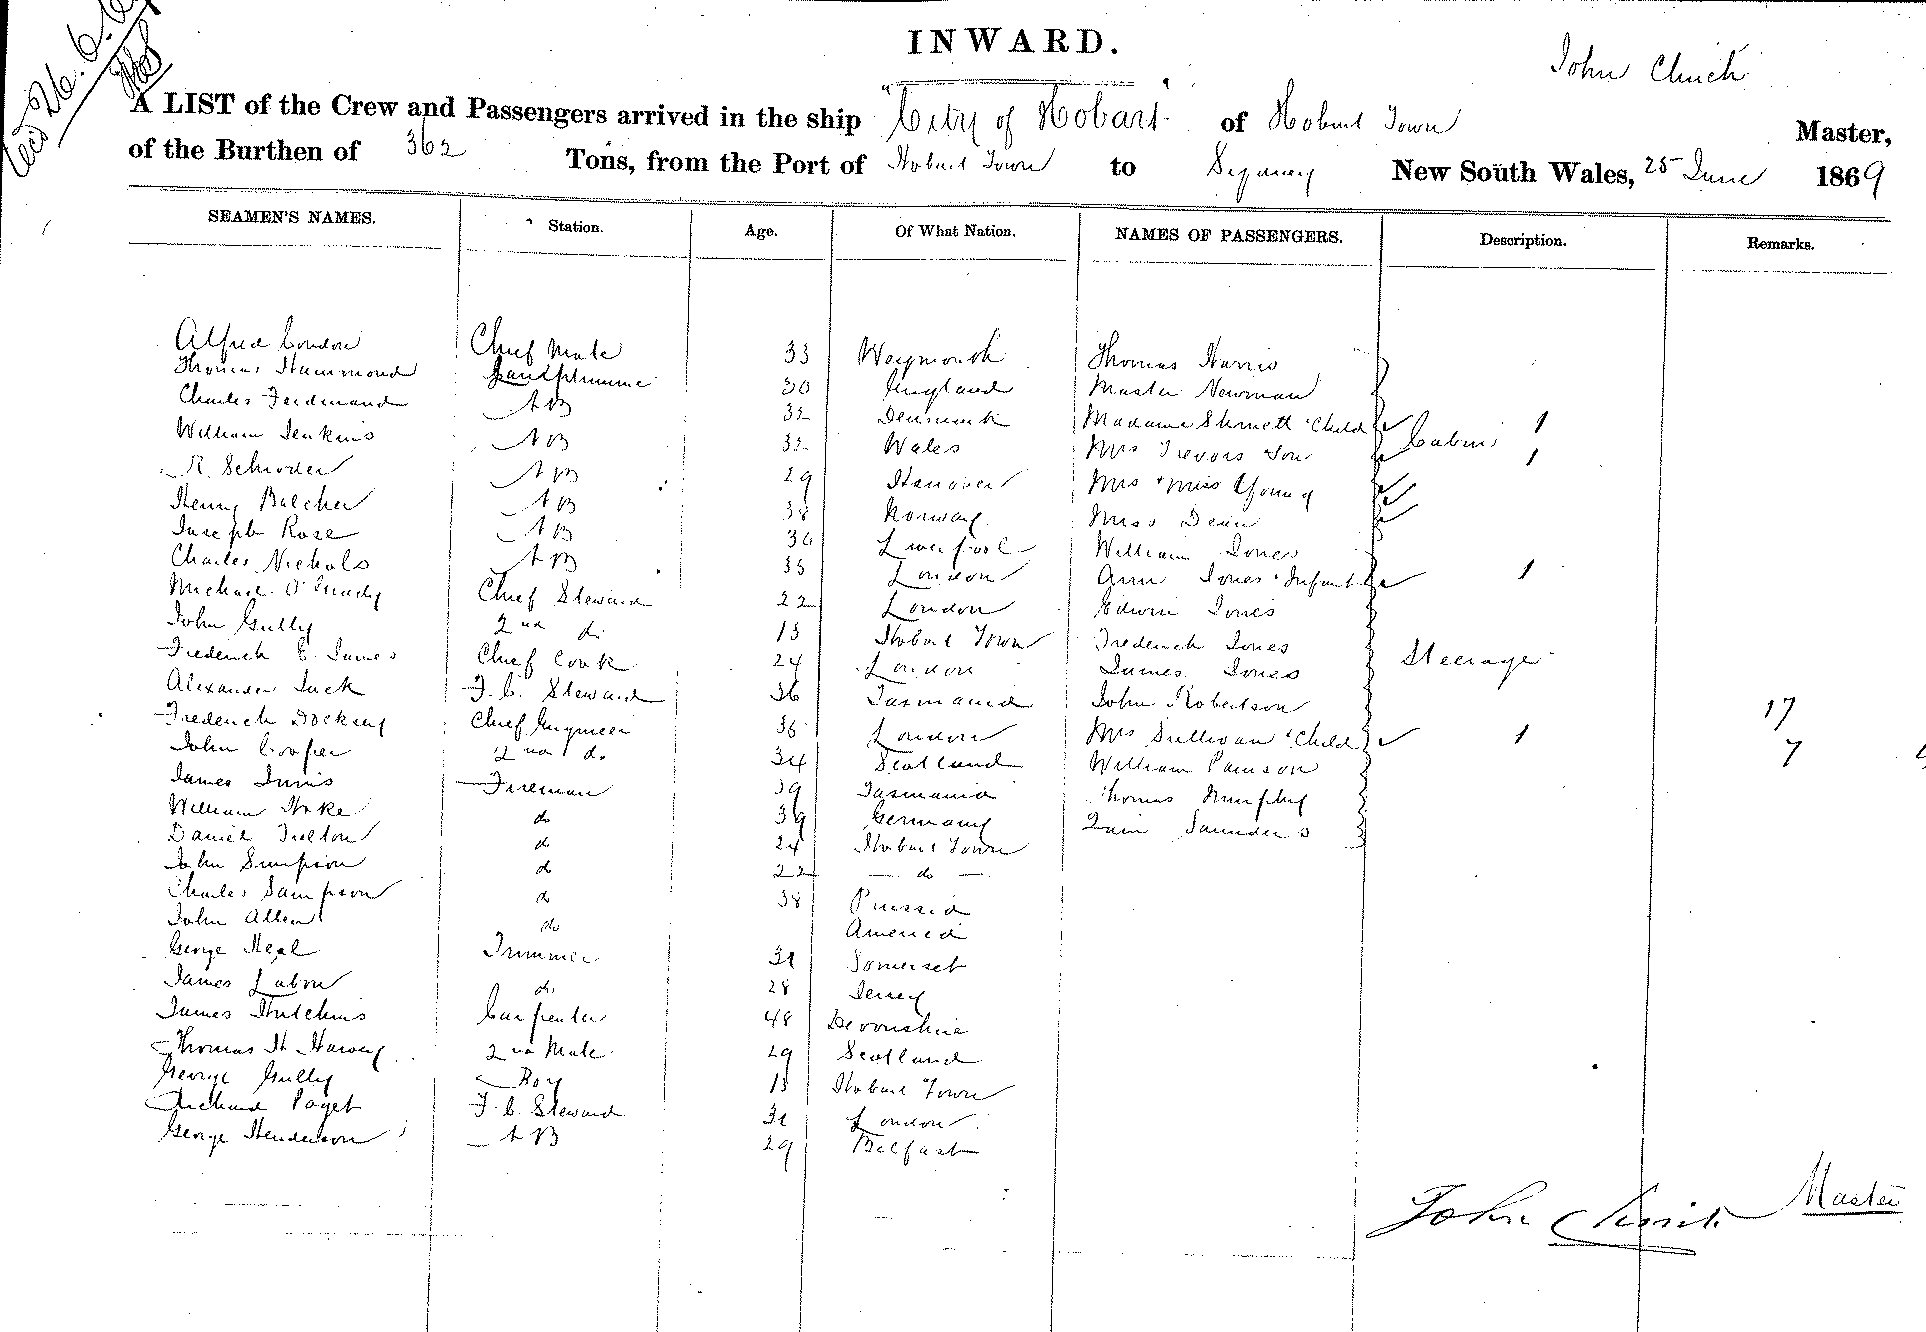 INWARD.
John Clinch
A LIST of the Crew and Passengers arrived in the ship "City of Hobart" of Hobart Town Master,
of the Burthen of 362 Tons, from the Port of Hobart Town to Sydney New South Wales, 25 June 1869
SEAMEN'S NAMES. Station. Age. Of What Nation. NAMES OF PASSENGERS. Description. Remarks.
Alfred Condon Chief Mate 33 Weymouth Thomas Harris
Thomas Hammond Lamptrimmer 30 England Master Newman
Charles Ferdinand AB 32 Denmark Madame Child Cabin 1
William Jenkins AB 32 Wales Mrs Trevors Son 1
R Schroder AB 29 Hanover Mrs & Miss Young
Henry Balcher AB 38 Norway Miss Dean
Joseph Rose AB 30 Liverpool William Jones
Charles Nichols AB 33 London Ann Jones & Infant 1
Michael O'Grady Chief Steward 22 London Edwin Jones
John Gully 2nd do 15 Hobart Town Frederick Jones
Frederick C. James Chief Cook 24 London James Jones Steerage
Alexander Jack F. C. Steward 36 Tasmania John Robertson 17
Frederick Docking Chief Engineer 35 London Mrs Sullivan & Child 1
John Cooper 2nd do 34 Scotland William 7
James Innis Fireman 39 Tasmania Thomas Murphy
William Hoke do 39 Germany Saunders
Daniel Fulton do 24 Hobart Town
John Simpson do 22 — do —
Charles Sampson do 38 Prussia
John Allen do America
George Heal Trimmer 31 Somerset
James Labon do 28 Jersey
James Hutchins Carpenter 48 Devonshire
Thomas H Harvey 2nd Mate 29 Scotland
George Gully Boy 15 Hobart Town
Richard Paget F. C. Steward 31 London
George Henderson AB 29 Belfast
John Clinch Master